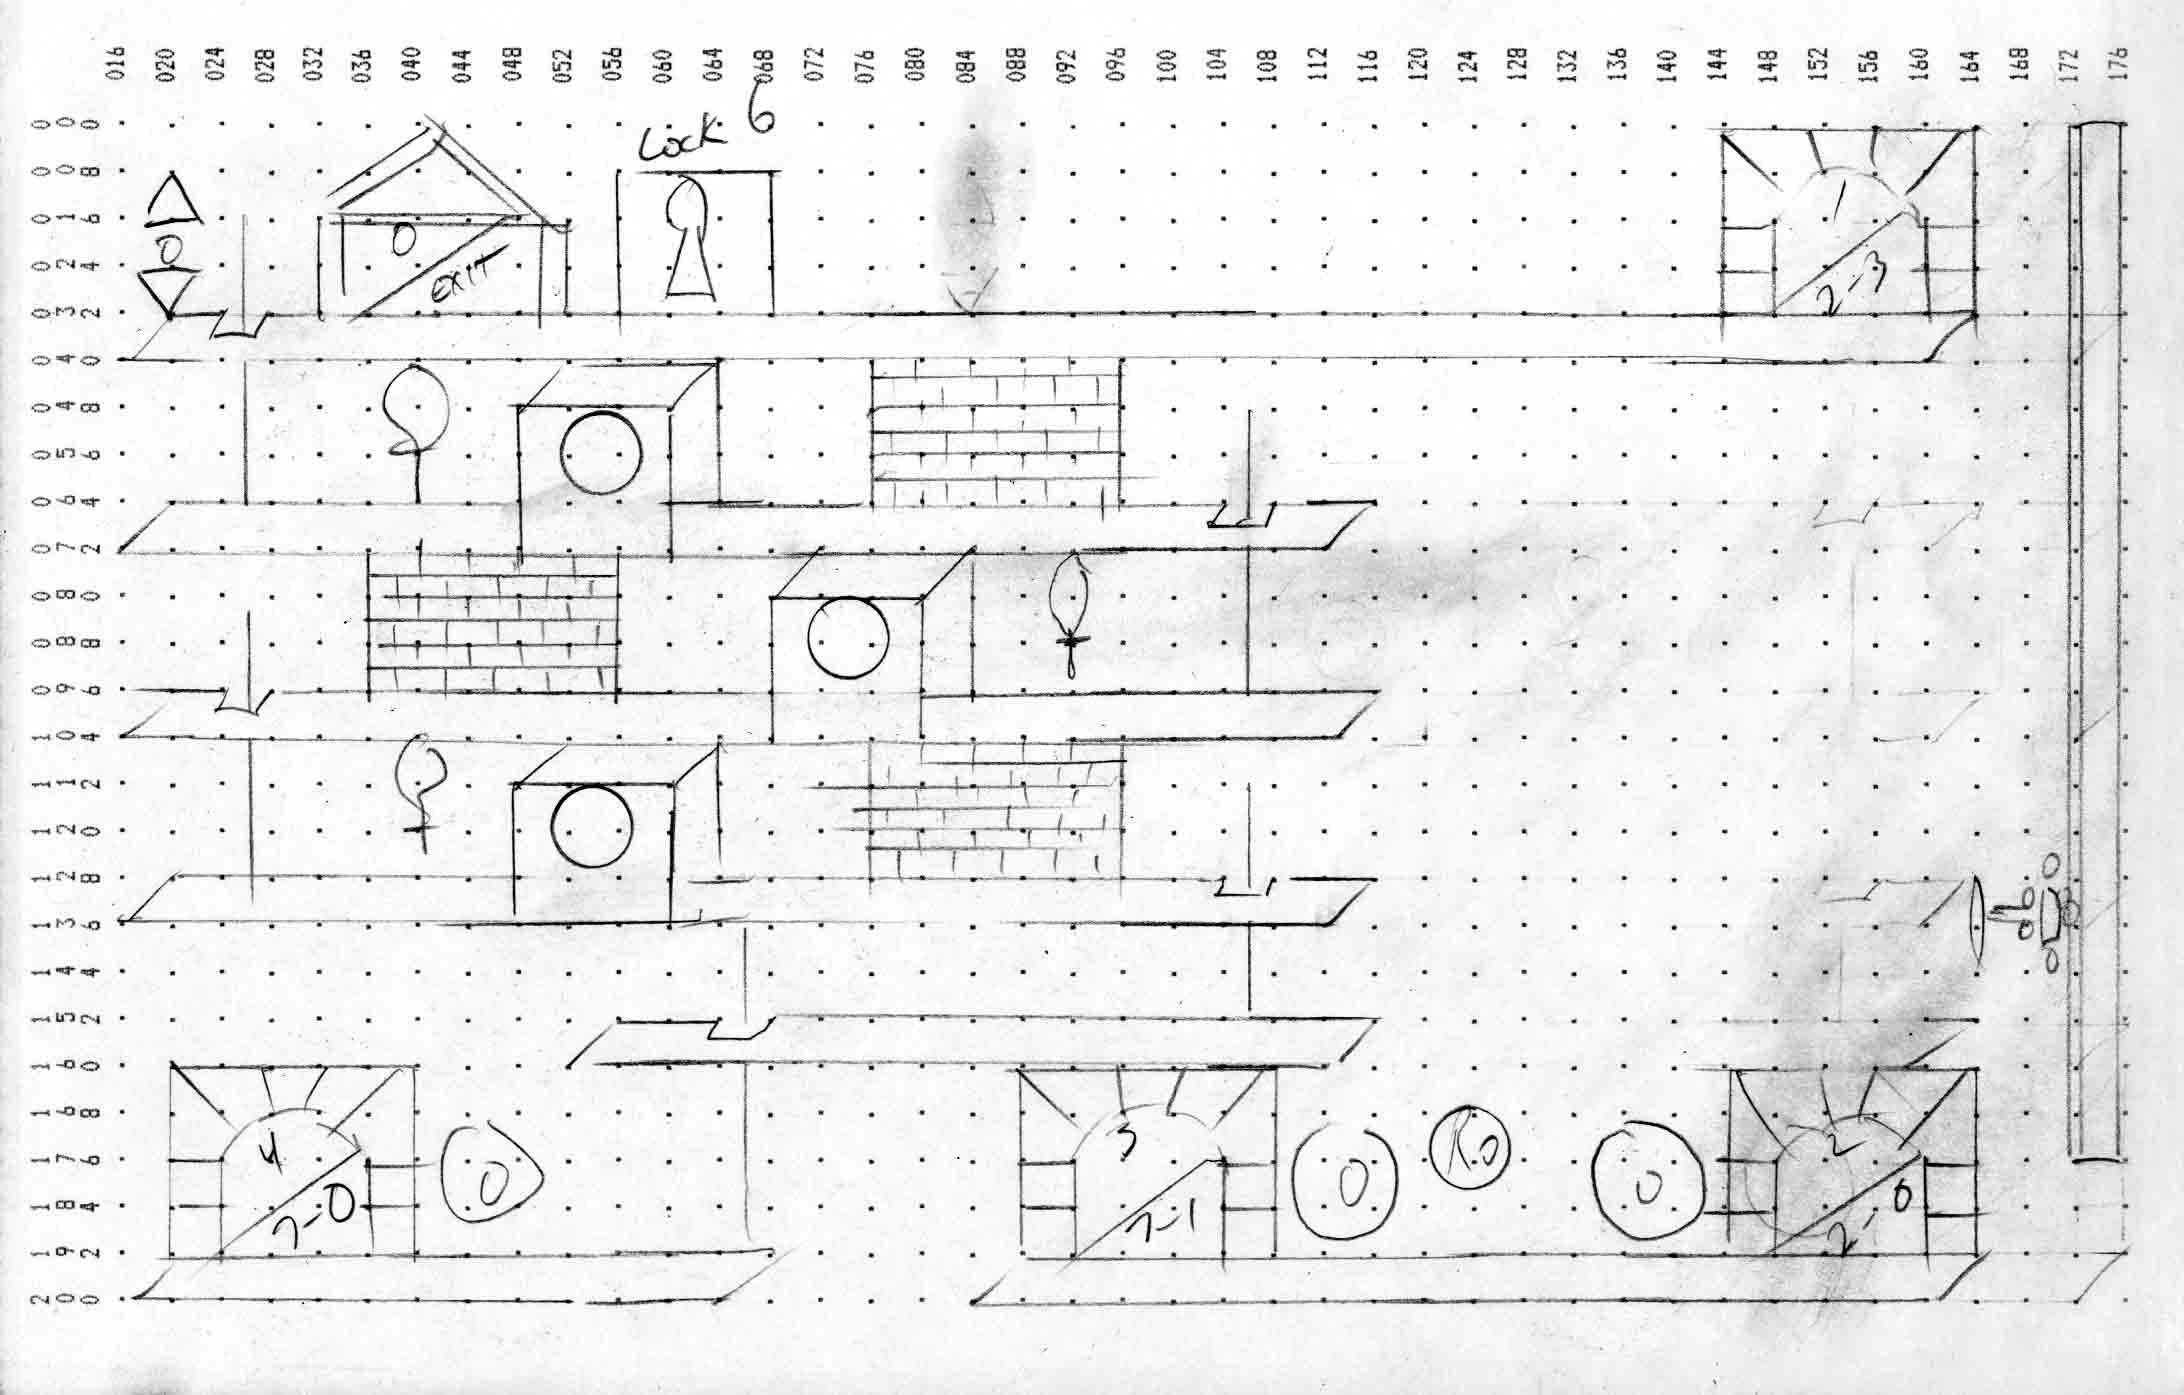 016 020 024 028 032 036 040 044 048 052 056 060 064 068 072 076 080 084 088 092 096 100 104 108 112 116 120 124 128 132 136 140 144 148 152 156 160 164 168 172 176
Lock 6
000
008
016
024
032
040
048
056
064
072
080
088
096
104
112
120
128
136
144
152
160
168
176
184
192
200
0
0
EXIT
1
2-3
4
7-0
0
3
7-1
0
Ro
0
2
2-0